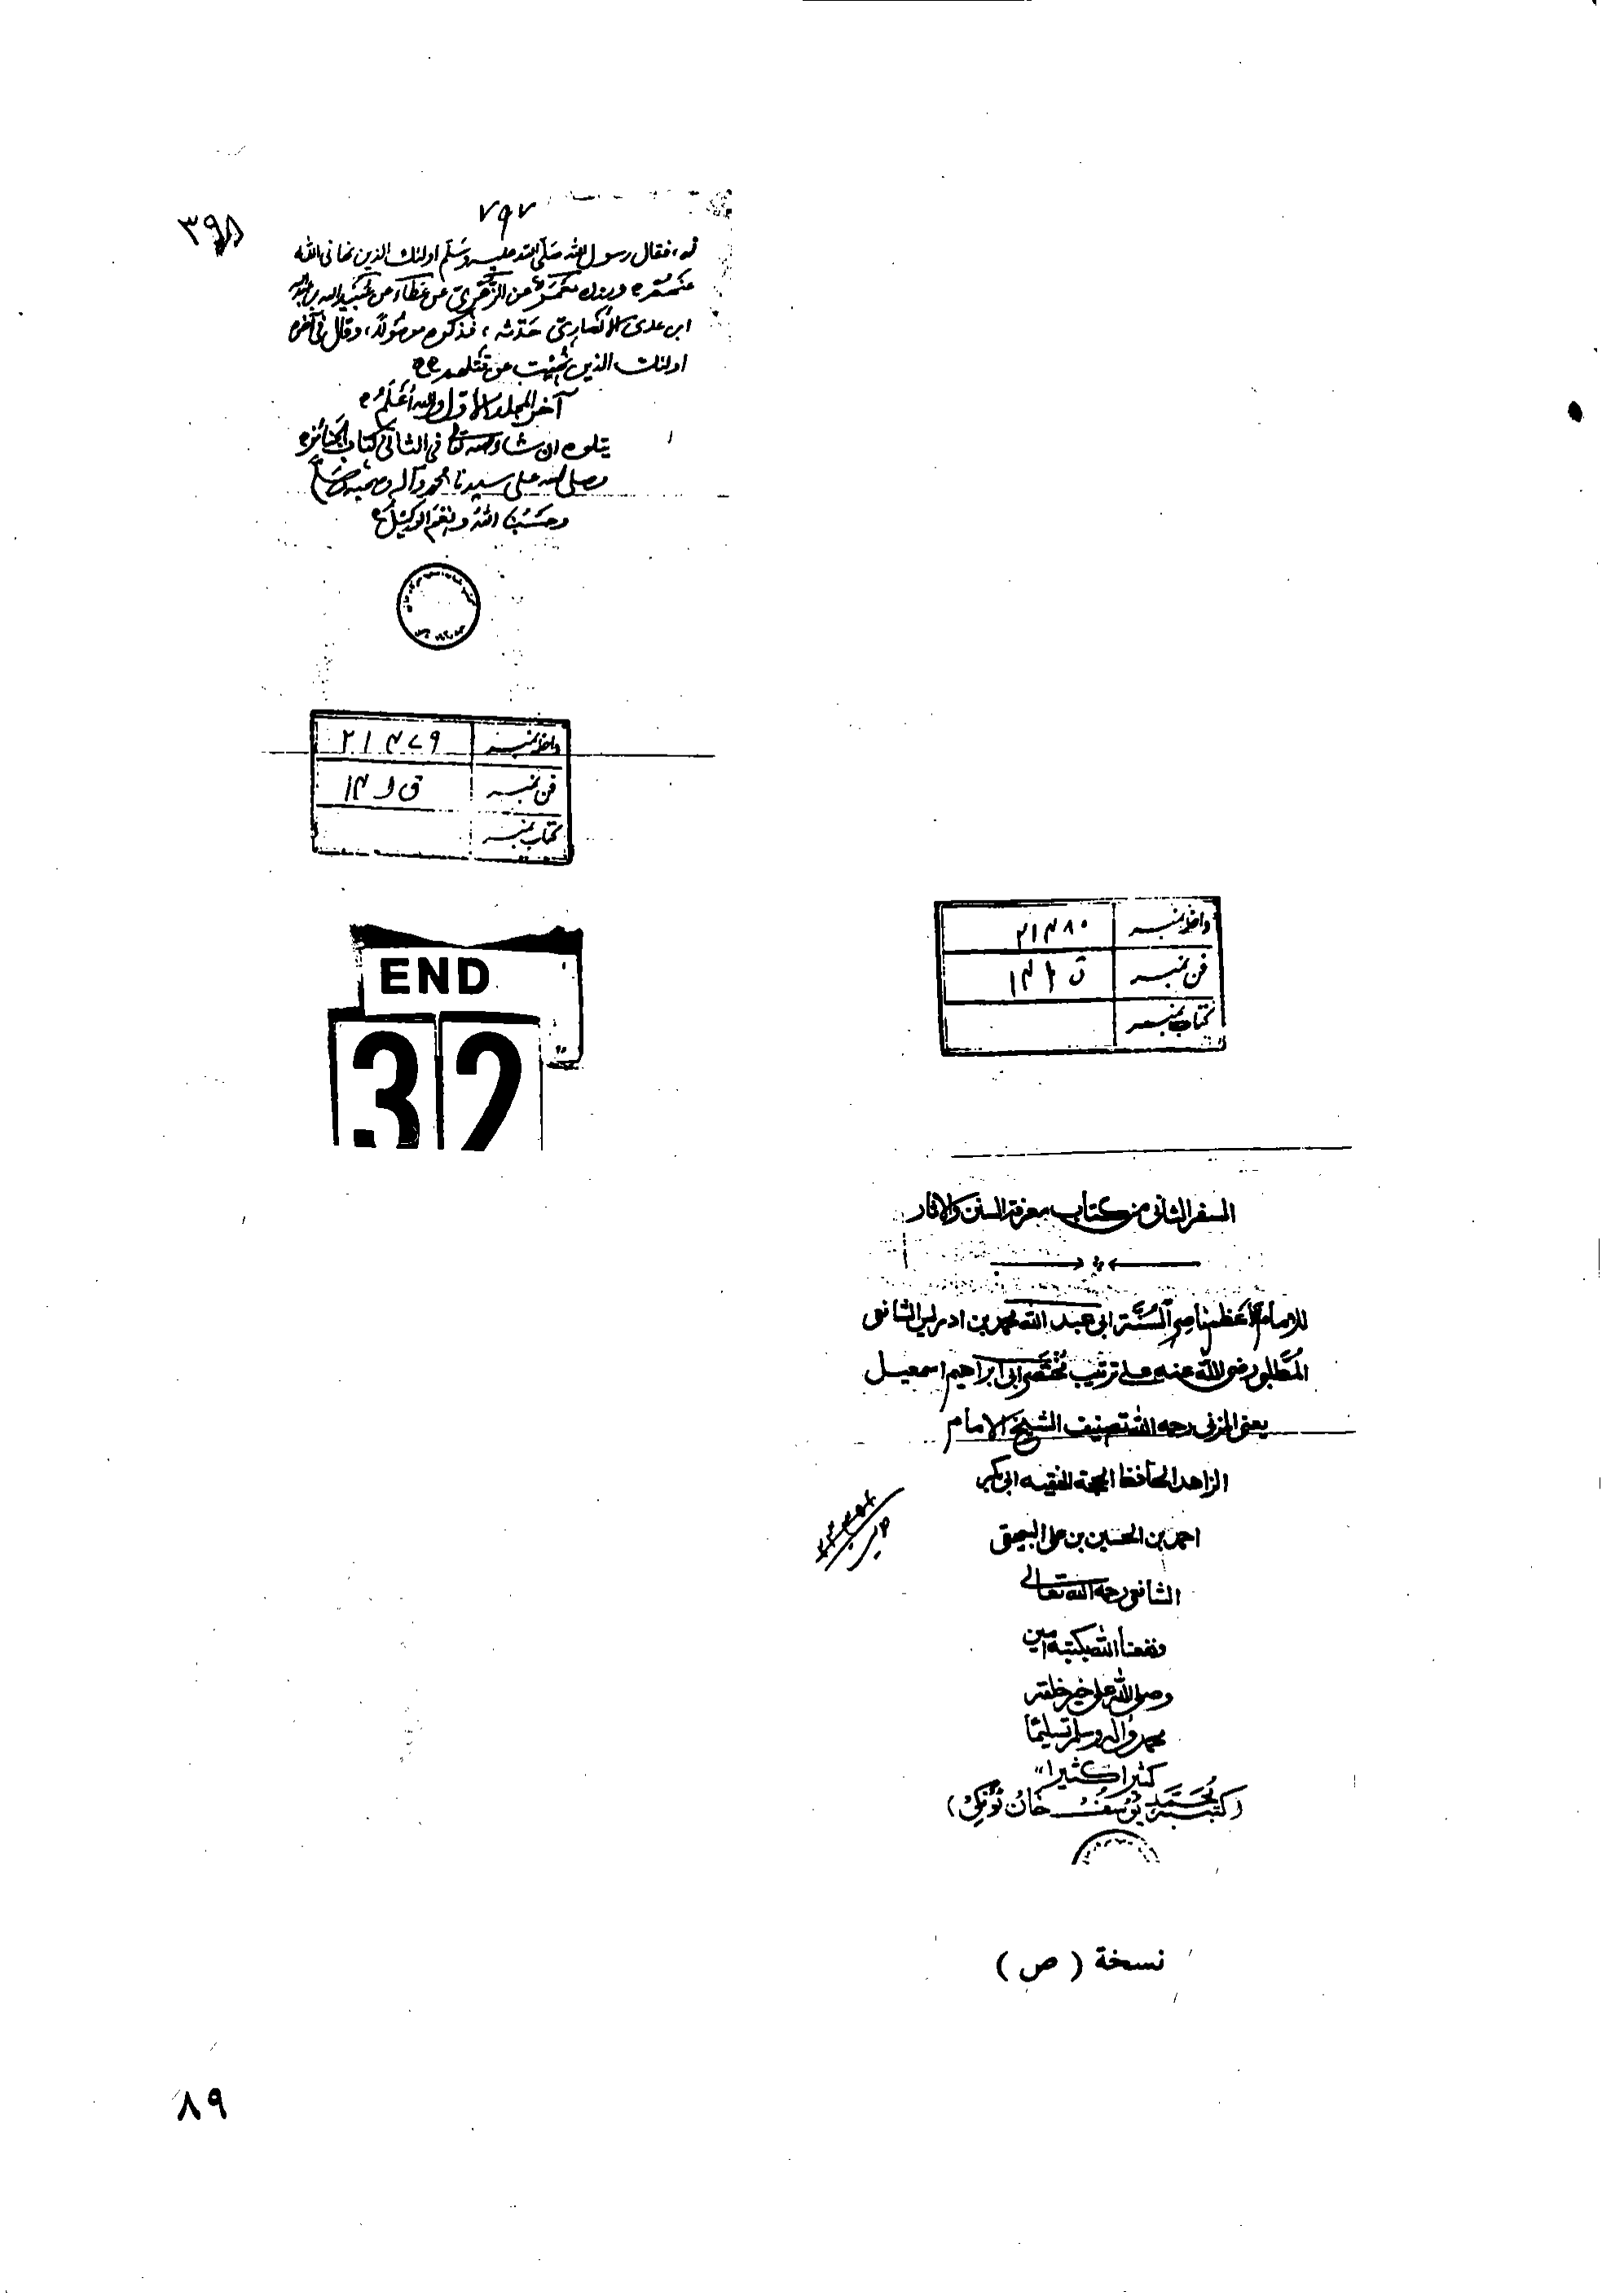 ٣٩٨
٧٩٧
له، فقال رسول الله صلى الله عليه وسلم اولئك الذين نهانى الله
عنهم ورواه معمر عن الزهرى عن عطاء عن عبيد الله بن
ابن عدى الأنصارى حدثه، فذكره موصولا، وقال فى آخره
اولئك الذين نهيت عن قتلهم
آخر المجلد الأول والله أعلم
يتلوه ان شاء الله تعالى فى الثانى كتاب الجنائز
وصلى الله على سيدنا محمد وآله وصحبه وسلم
وحسبنا الله ونعم الوكيل
داخلہ نمبر ٢١٤٧٩
فن نمبر ١٤١ ق
کتاب نمبر
END
32
داخلہ نمبر ٢١٤٨٠
فن نمبر ١٤٢ ق
کتاب نمبر
السفر الثانى من كتاب معرفة السنن والاثار
للامام الاعظم ناصر السُّنَّة ابى عبد الله محمد بن ادريس الشافعى
المُطَّلبى رضى الله عنه على ترتيب مُختصر ابى ابراهيم اسمعيل
يعنى المزنى رحمه الله تصنيف الشيخ الامام
الزاهد الحافظ الحجة الفقيه ابى بكر
احمد بن الحسين بن على البيهقى
الشافعى رحمه الله تعالى
ونفعنا الله بكتبه امين
وصلى الله على خير خلقه
محمد وآله وسلم تسليمًا
كثيرا كثيرا
(كتبه مُحَمَّد يُوسُف خَان تُونكِى)
نسخة ( ص )
٨٩